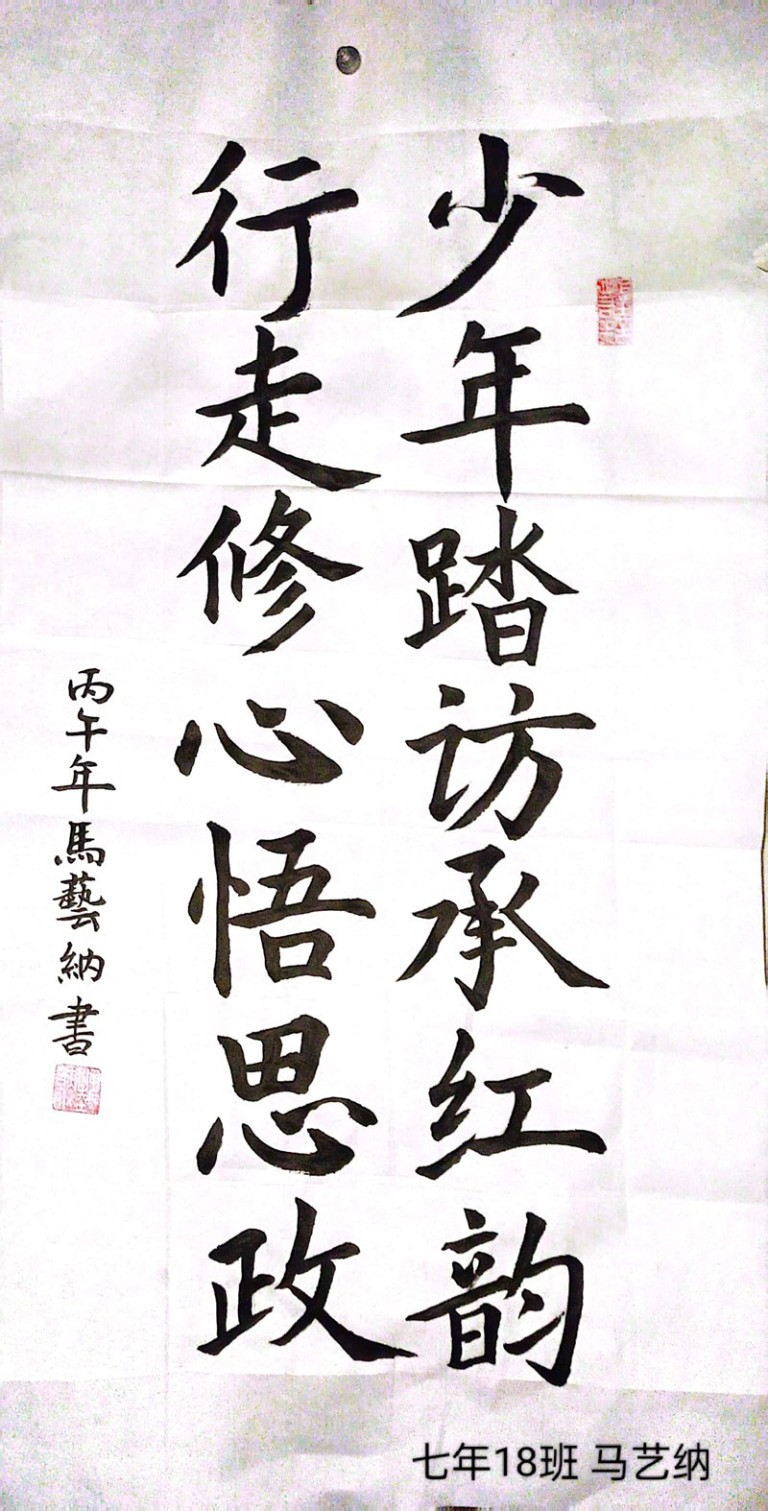 少年踏访承红韵
行走修心悟思政
丙午年馬藝納書
七年18班 马艺纳